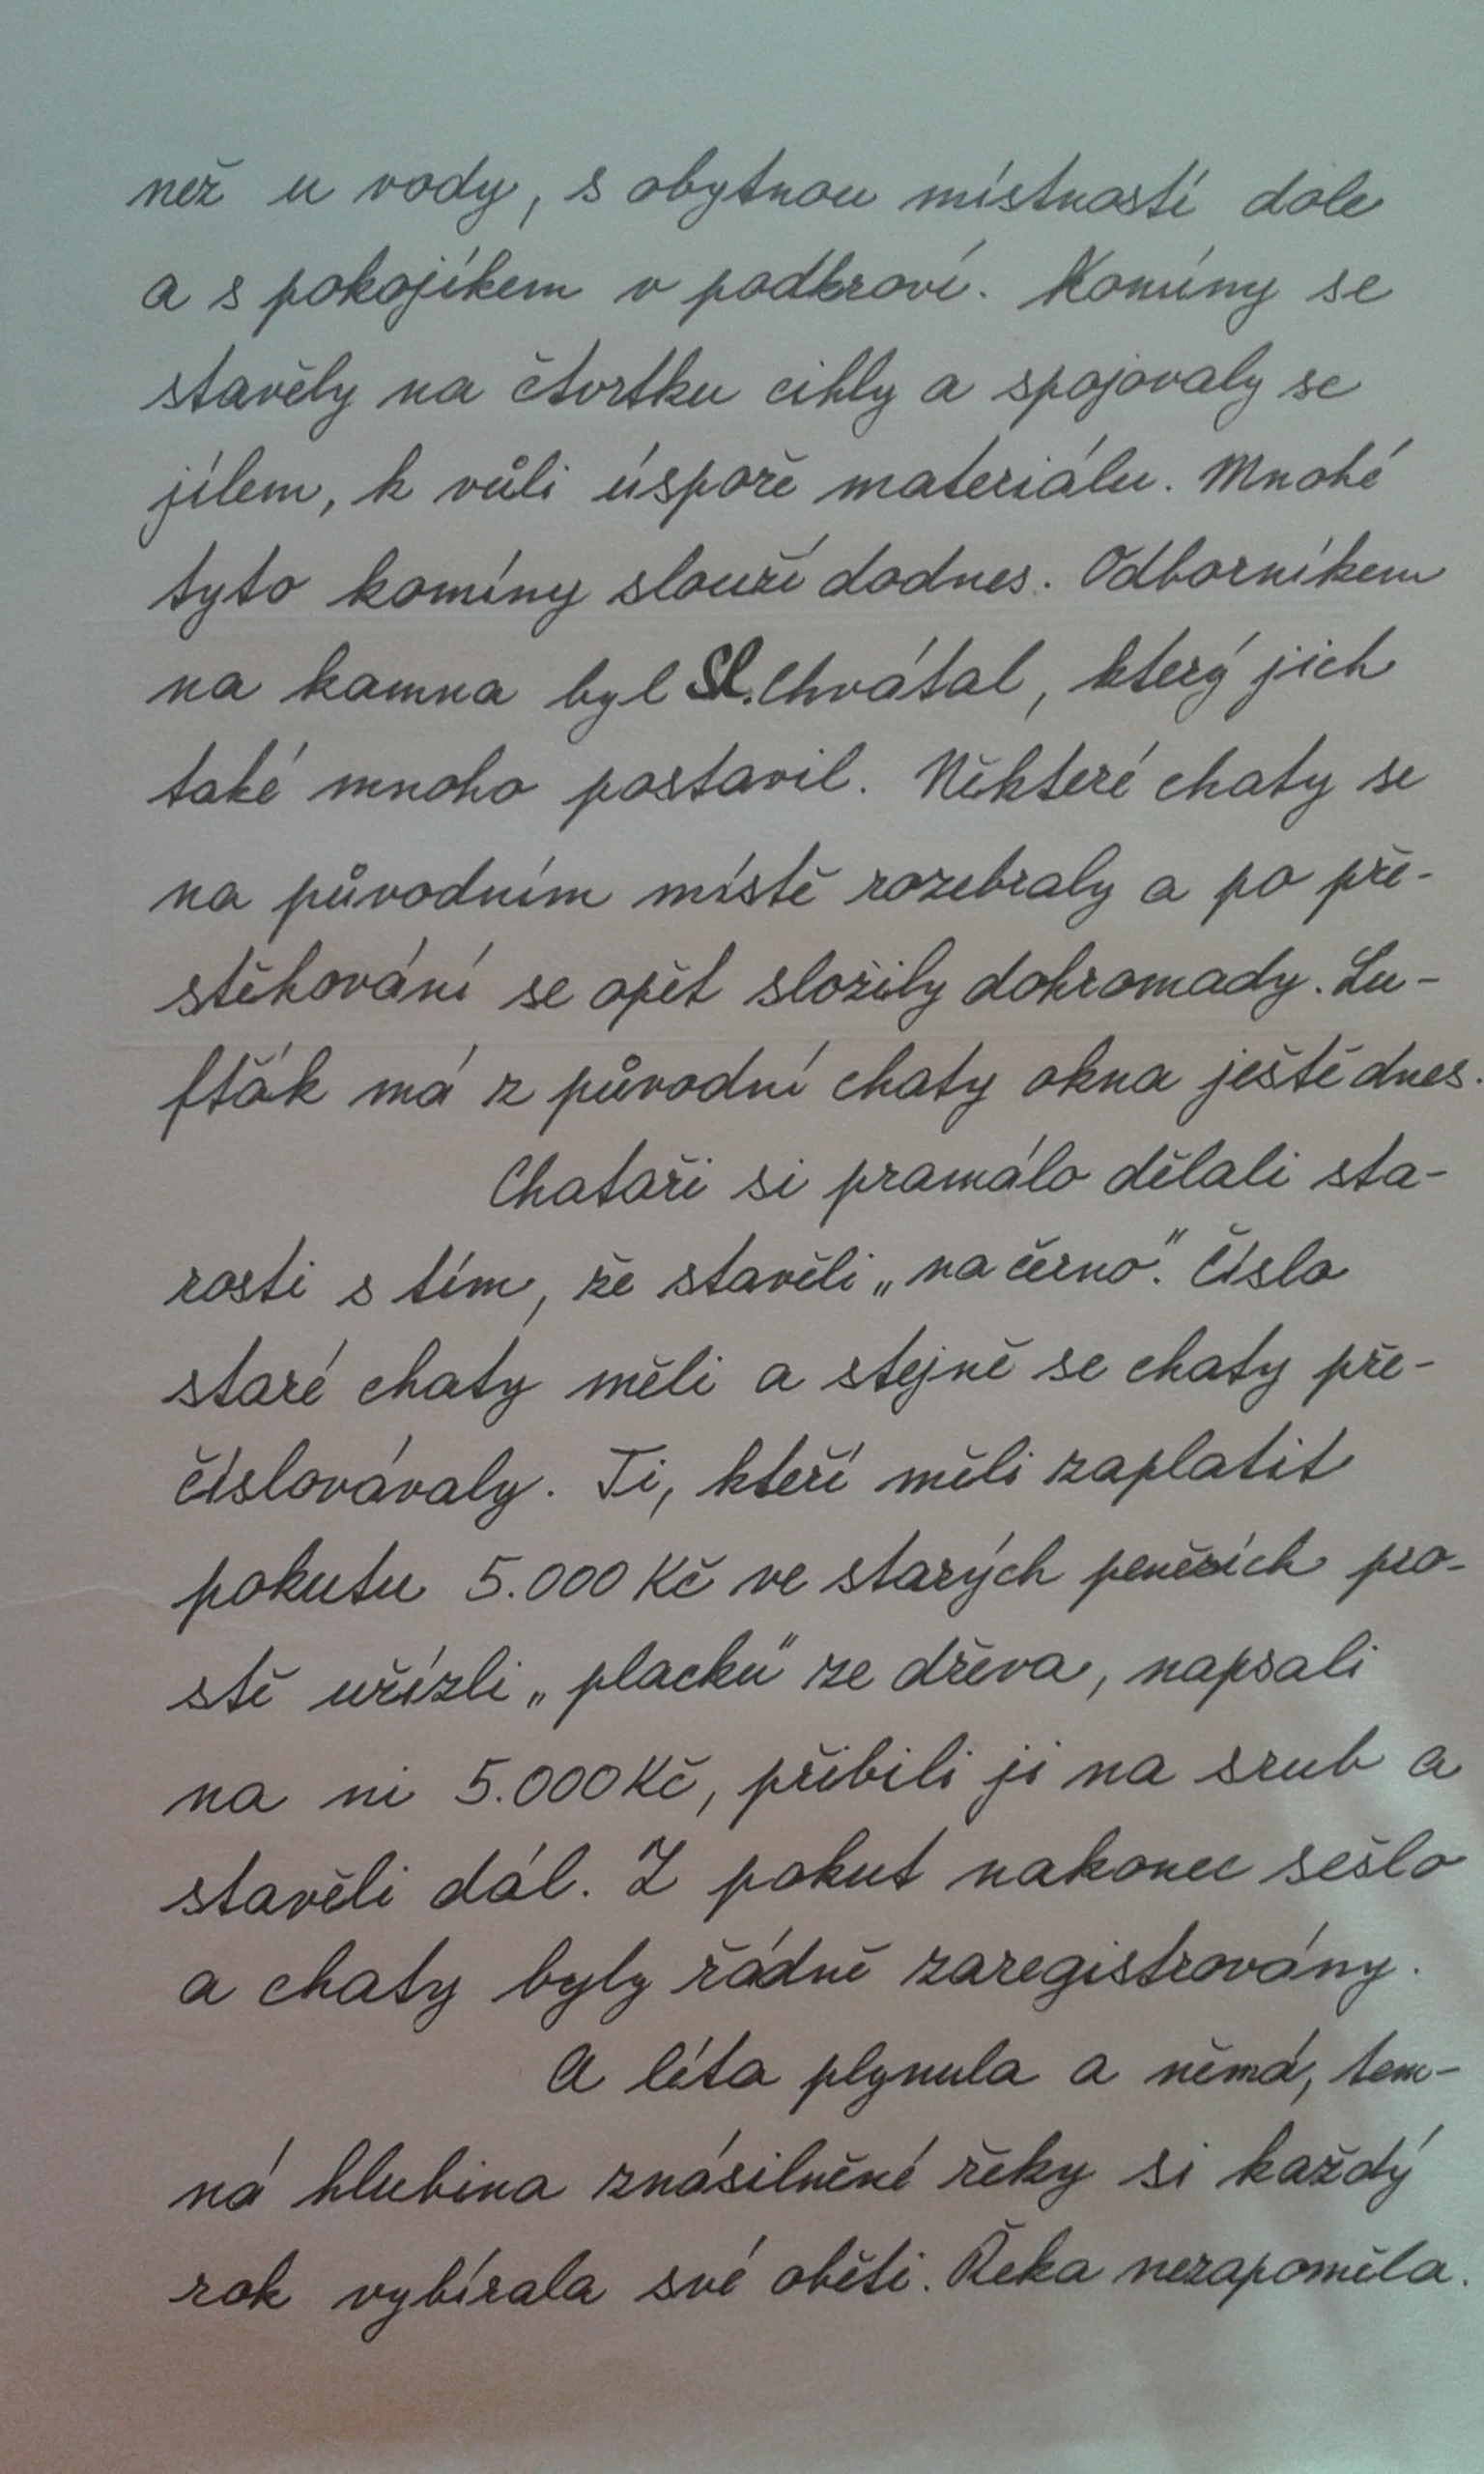 než u vody, s obytnou místností dole
a s pokojíkem v podkroví. Komíny se
stavěly na čtvrtku cihly a spojovaly se
jílem, k vůli úspoře materiálu. Mnohé
tyto komíny slouží dodnes. Odborníkem
na kamna byl Sl. Chvátal, který jich
také mnoho postavil. Některé chaty se
na původním místě rozebraly a po pře-
stěhování se opět složily dohromady. Lu-
fťák má z původní chaty okna ještě dnes.
Chataři si pramálo dělali sta-
rosti s tím, že stavěli „na černo". Čísla
staré chaty měli a stejně se chaty pře-
číslovávaly. Ti, kteří měli zaplatit
pokutu 5.000 Kč ve starých penězích pro-
stě uřízli „placku" ze dřeva, napsali
na ni 5.000 Kč, přibili ji na srub a
stavěli dál. Z pokut nakonec sešlo
a chaty byly řádně zaregistrovány.
A léta plynula a němá, tem-
ná hlubina znásilněné řeky si každý
rok vybírala své oběti. Řeka nezapoměla.